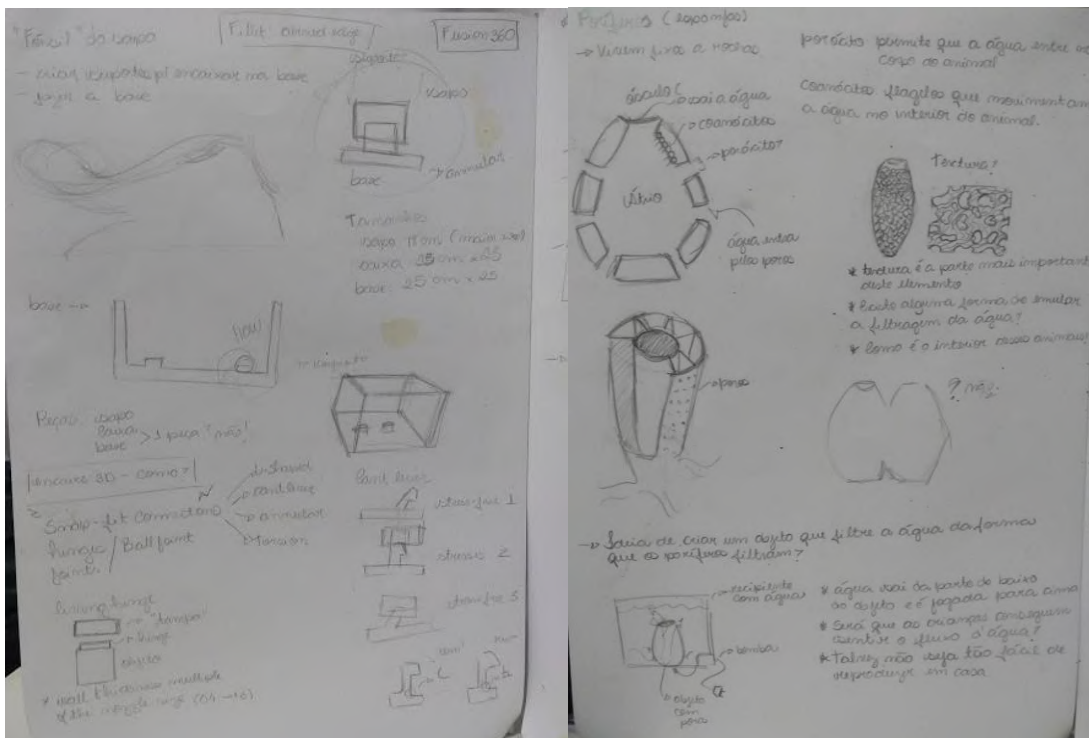 "Fóssil" do sapo
Fillet: arred
Fusion360
- criar suporte p/ encaixar na base
a base
suporte
sapo
annular
base
Tamanhos
sapo
caixa
base: 25 cm x 25
base →
Peças: sapo
base > 1 peça? não!
encaixe 3D - como?
Snap-fit
hinge / Ball joint
joints
u-shaped
cantilever
annular
torsion
living hinge
"tampa"
hinge
objeto
* wall thickness multiple
of the nozzle
Poríferos (esponjas)
→ Vivem fixos a rochas
porócito permite que a água entre no
corpo do animal
coanócitos flagelos que movimentam
a água no interior do animal.
ósculo
sai a água
coanócitos
porócitos
Átrio
água entra
pelos poros
Textura?
* textura é a parte mais important
deste elemento
alguma forma de simular
a filtragem da água?
* Como é o interior desses animais?
poros
? não
→ Ideia de criar um objeto que filtre a água da forma
que os poríferos filtram?
recipiente
com água
bomba
objeto
com
poros
* água sai da parte de baixo
do objeto e é jogada para cima
* Será que as crianças conseguem
sentir o fluxo d'água?
* Talvez não seja tão fácil de
reproduzir em casa